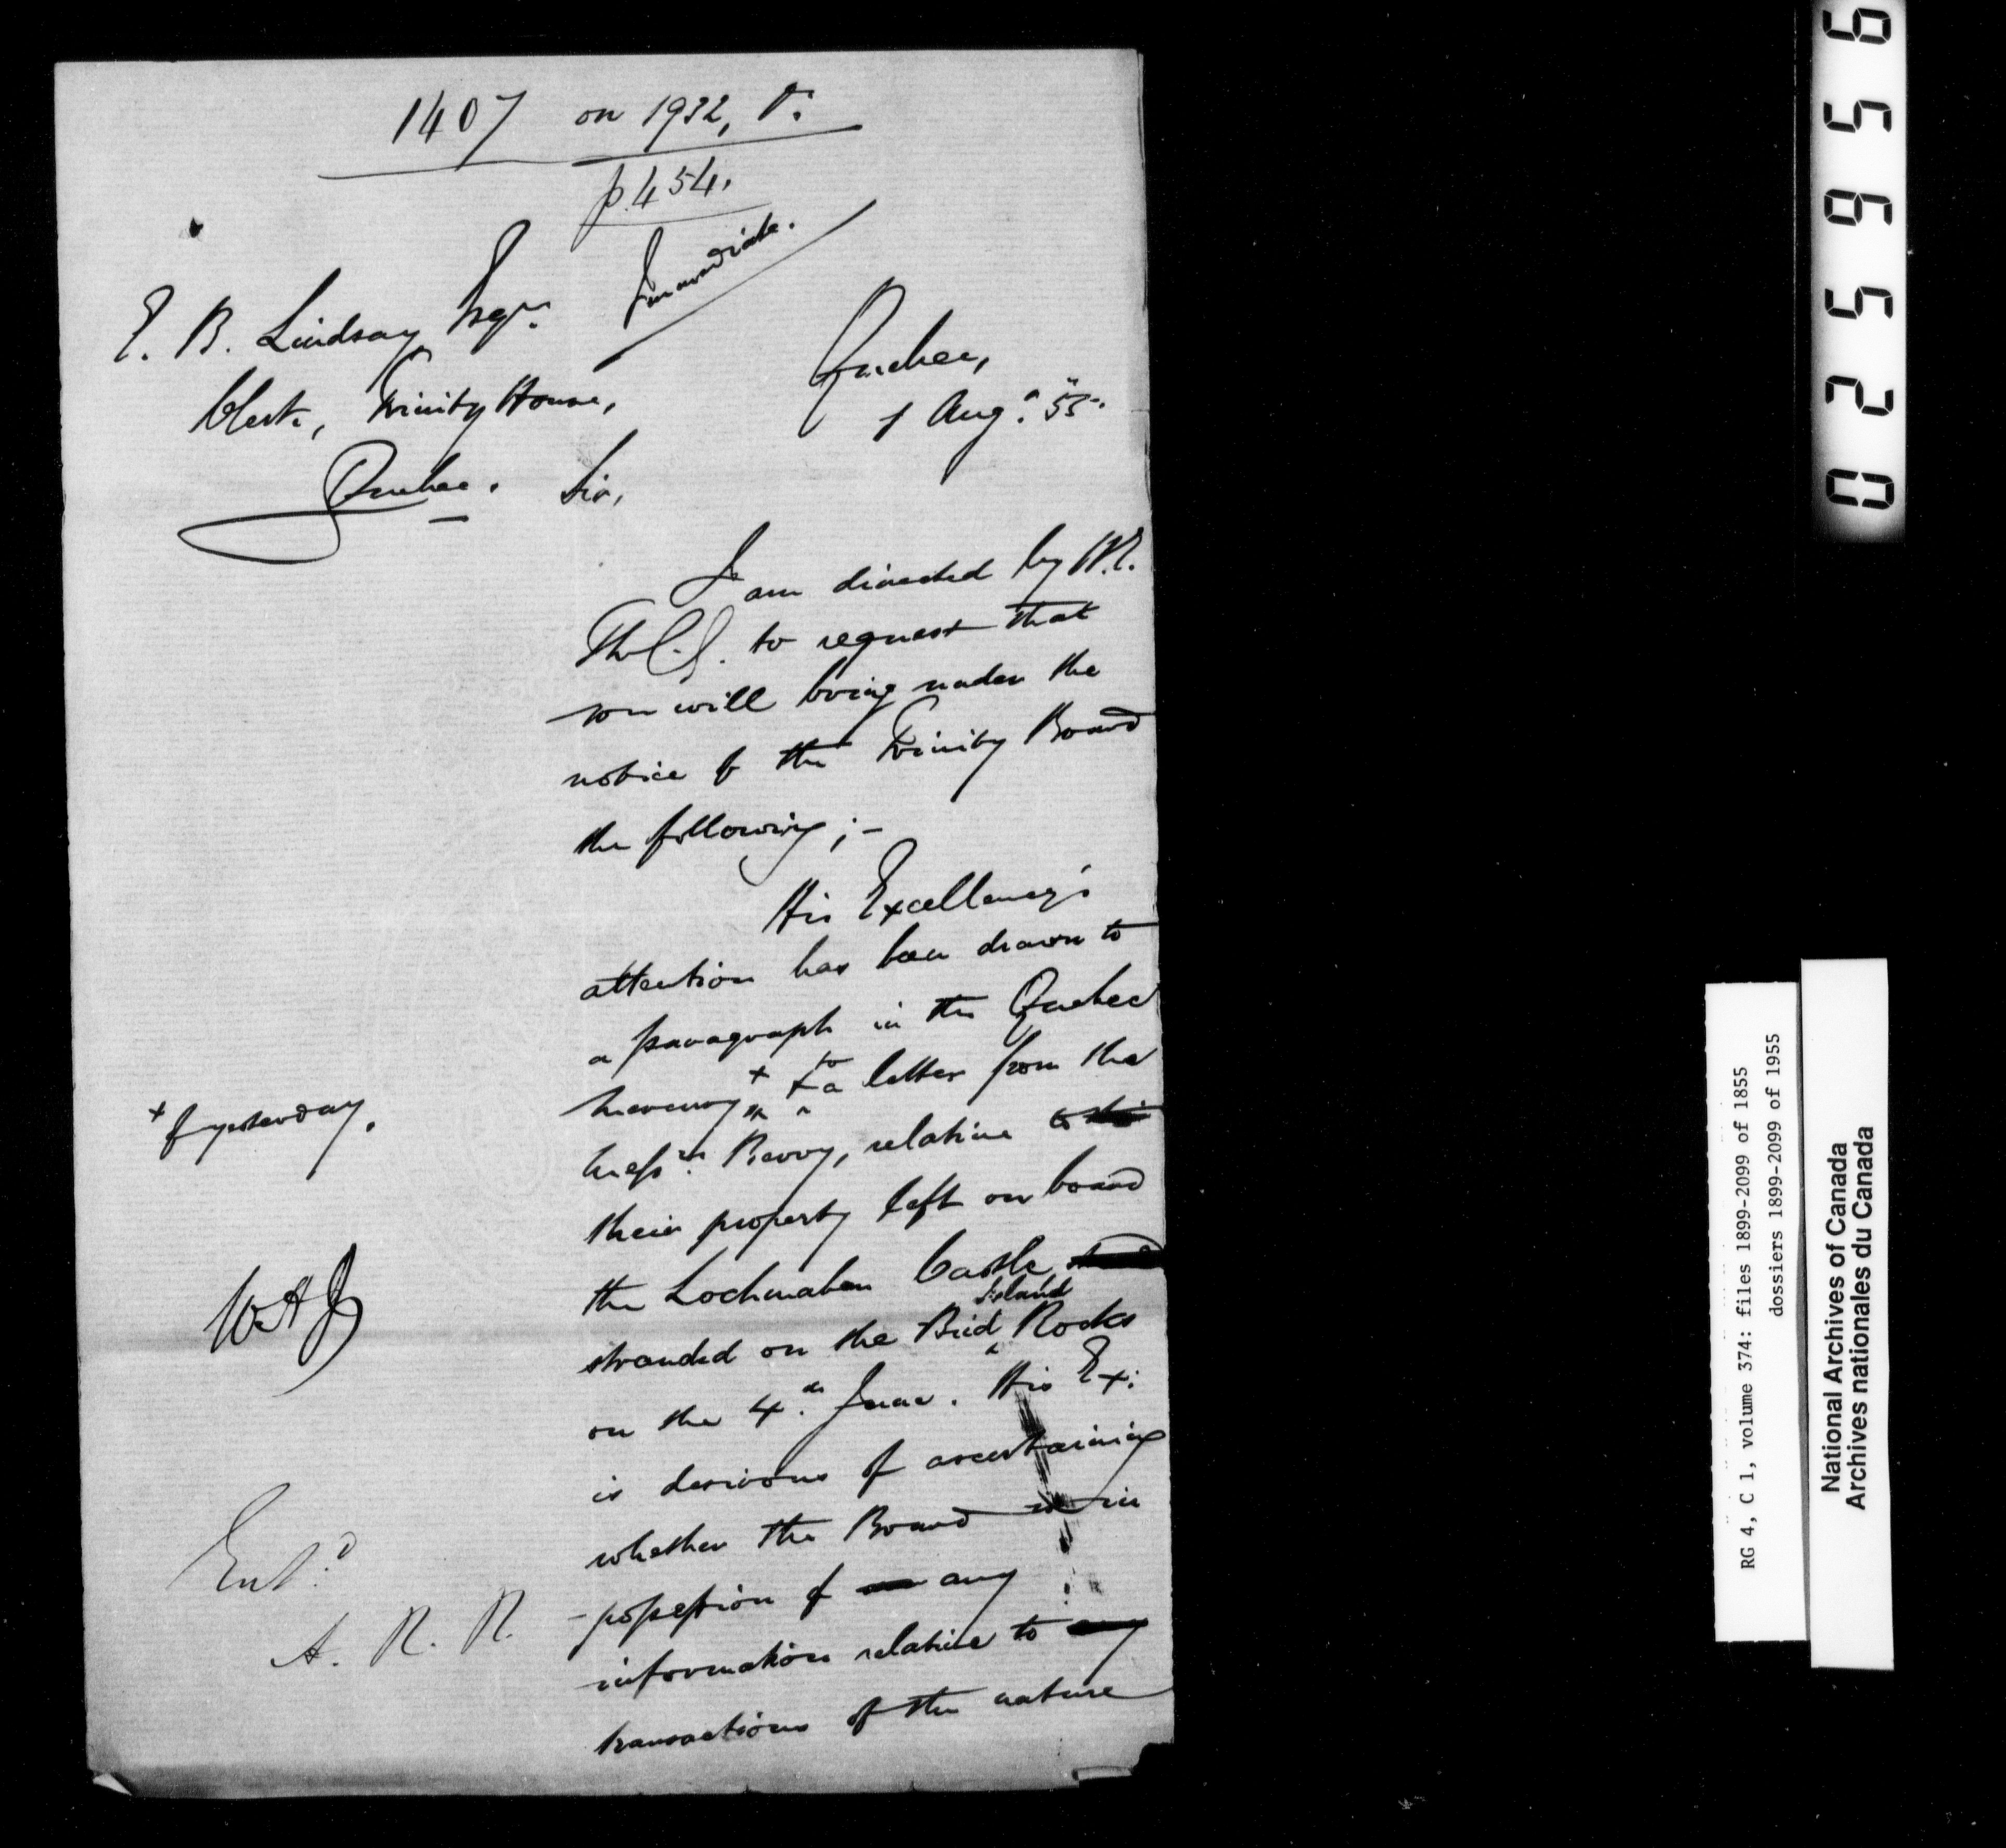 1407 on 1932,
p. 454.
Immediate.
E. B. Lindsay Esqr.
Clerk, Trinity House,
Quebec.
Quebec,
1 Aug. 55.
Sir,
I am directed by H.E.
The G. G. to request that
you will bring under the
notice of the Trinity Board
the following;-
His Excellency's
attention has been drawn to
a paragraph in the Quebec
Mercury + & to a letter from the
+ of yesterday.
Messrs. Berry, relative to
their property left on board
the Lochmaben Castle
stranded on the Bird Island Rocks
on the 4th. June. His Ex:
is desirous of ascertaining
whether the Board is in
possession of any
information relative to any
transactions of the nature
Entd.
A. R. R.
025956
RG 4, C 1, volume 374: files 1899-2099 of 1855
dossiers 1899-2099 of 1955
National Archives of Canada
Archives nationales du Canada